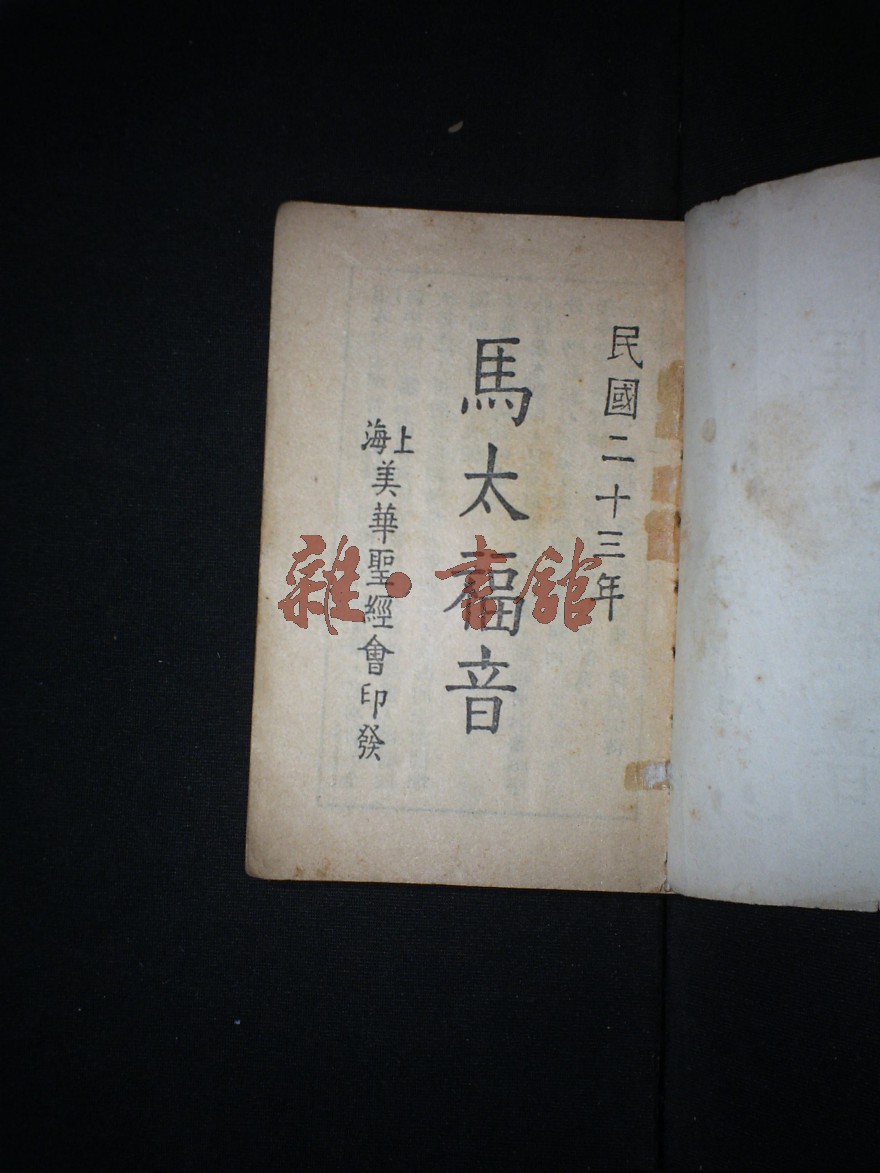 民國二十三年
馬太福音
上海美華聖經會印發
雜·書館